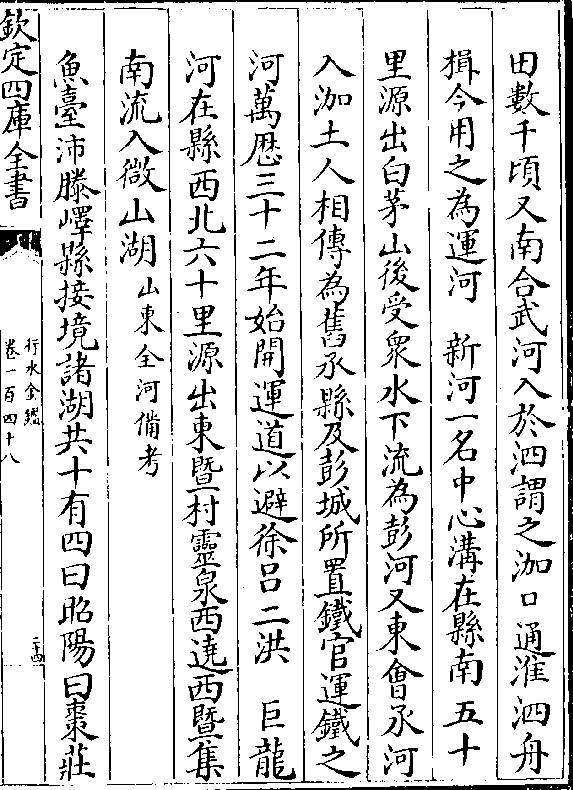 田數千頃又南合武河入於泗謂之泇口通淮泗舟
楫今用之為運河　新河一名中心溝在縣南五十
里源出白茅山後受衆水下流為彭河又東會氶河
入泇土人相傳為舊氶縣及彭城所置鐵官運鐵之
河萬厯三十二年始開運道以避徐吕二洪　巨龍
河在縣西北六十里源出東暨村靈泉西遶西暨集
南流入微山湖山東全河備考
魚臺沛滕嶧縣接境諸湖共十有四曰昭陽曰棗莊
欽定四庫全書
行水金鑑
卷一百四十八
二十四